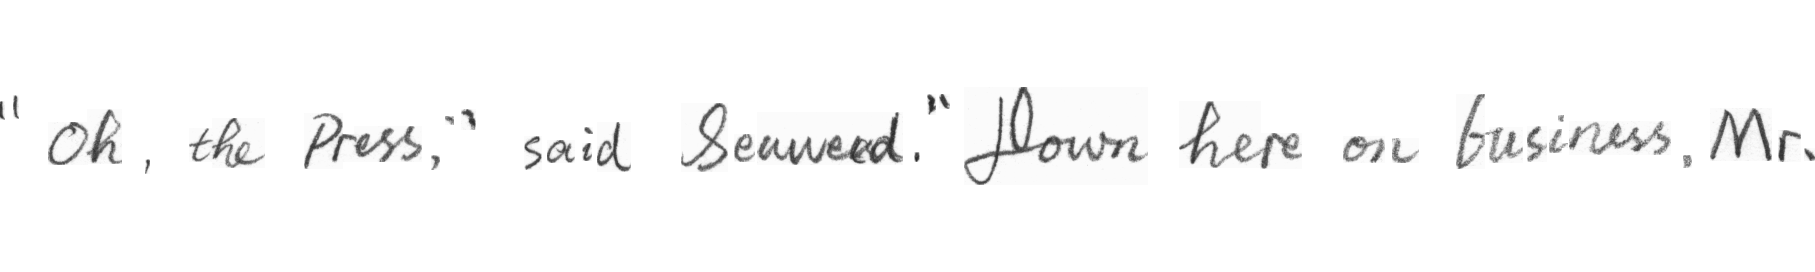 "Oh, the Press," said Seaweed." Down here on business, Mr.